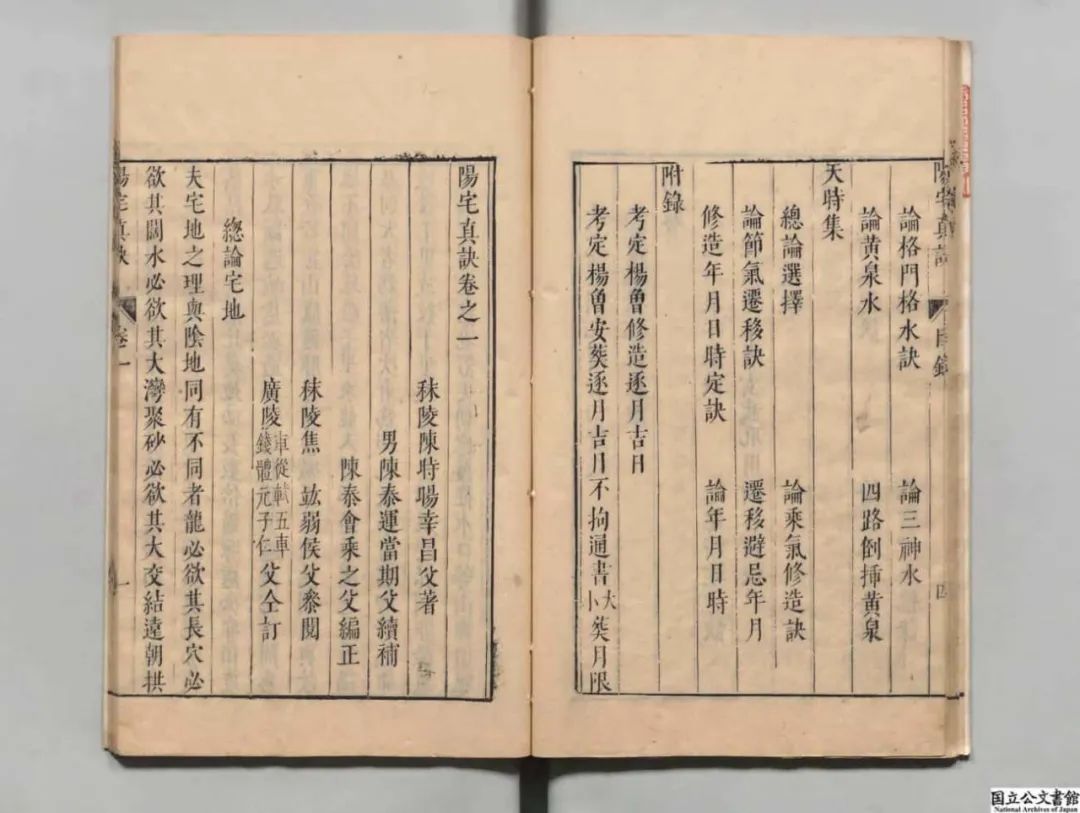 論格門格水訣　論三神水
論黃泉水　四路倒揷黃泉
天時集
總論選擇　論乘氣修造訣
論節氣遷移訣　遷移避忌年月
修造年月日時定訣　論年月日時
附錄
考定楊曾修造逐月吉日
考定楊曾安葬逐月吉日不拘通書大卜葬月限
陽宅真訣卷之一
秣陵陳時暘幸昌父著
男陳泰運當期父續補
陳泰會乘之父編正
秣陵焦竑弱侯父叅閱
廣陵車從軾五車錢體元子仁父仝訂
總論宅地
夫宅地之理與陰地同有不同者龍必欲其長穴必
欲其闊水必欲其大灣聚砂必欲其大交結遠朝拱
陽宅真訣
卷一
一
国立公文書館
National Archives of Japan